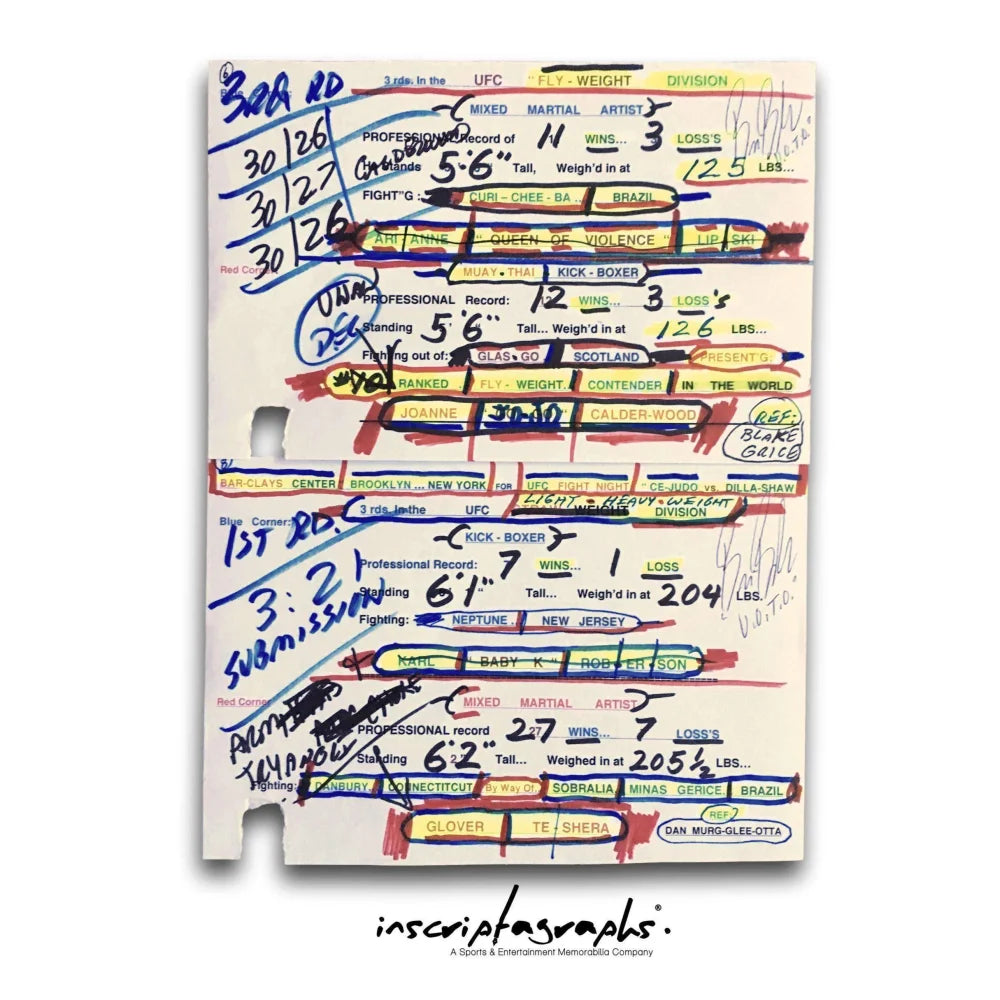 6
3RD RD
3 rds. In the UFC "FLY - WEIGHT DIVISION
MIXED MARTIAL ARTIST
30/26
PROFESSIONAL Record of 11 WINS... 3 LOSS'S
CALDERWOOD
He Stands 5'6" Tall, Weigh'd in at 125 LBS...
30/27
FIGHT"G: CURI - CHEE - BA .. BRAZIL
30/26
ARI ANNE " QUEEN OF VIOLENCE " LIP SKI
Red Corner
MUAY . THAI KICK - BOXER
UNAN
DEC
PROFESSIONAL Record: 12 WINS... 3 LOSS's
Standing 5'6" Tall... Weigh'd in at 126 LBS...
Fighting out of: GLAS.GO SCOTLAND PRESENT'G:
RANKED FLY - WEIGHT. CONTENDER IN THE WORLD
JOANNE "JO-JO" CALDER-WOOD
REF:
BLAKE
GRICE
BAR-CLAYS CENTER BROOKLYN ... NEW YORK FOR UFC FIGHT NIGHT " CE-JUDO vs. DILLA-SHAW
LIGHT - HEAVY - WEIGHT
Blue Corner: 3 rds. In the UFC WEIGHT DIVISION
1ST RD.
KICK - BOXER
Professional Record: 7 WINS... 1 LOSS
3:21
Standing 6'1" Tall... Weigh'd in at 204 LBS.
SUBMISSION
Fighting: NEPTUNE . NEW JERSEY
KARL " BABY K " ROB ER SON
Red Corner
MIXED MARTIAL ARTIST
ARM
TRYANGLE
CHOKE
PROFESSIONAL record 27 WINS... 7 LOSS'S
Standing 6'2" Tall... Weighed in at 205½ LBS...
Fighting: DANBURY, CONNECTITCUT By Way Of. SOBRALIA, MINAS GERICE, BRAZIL
GLOVER TE - SHERA
REF?
DAN MURG-GLEE-OTTA
inscriptagraphs.®
A Sports & Entertainment Memorabilia Company